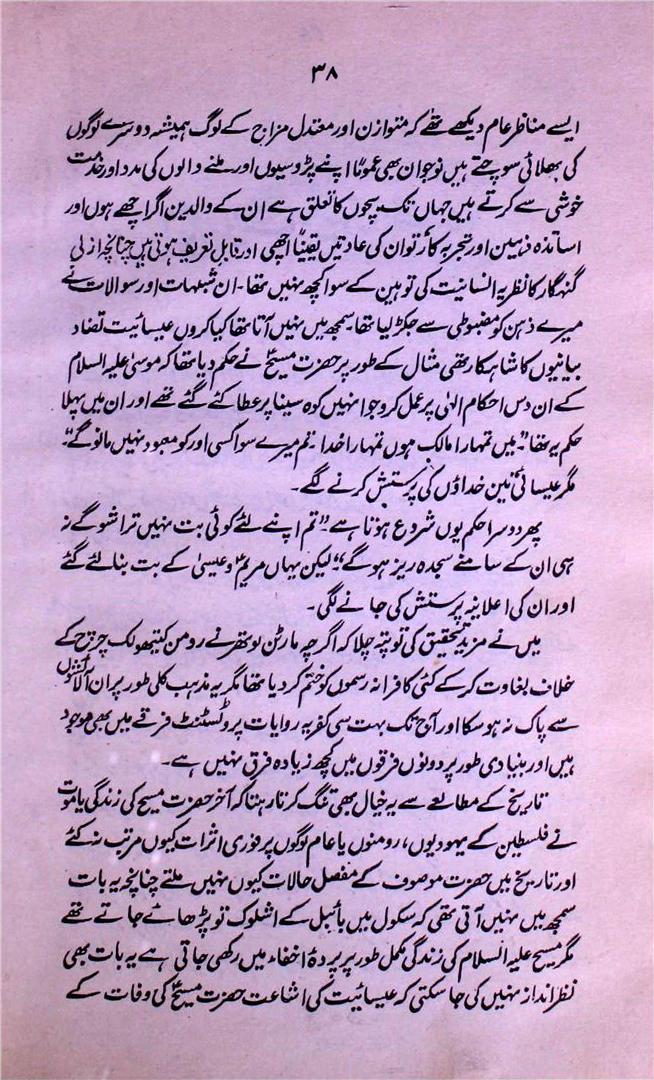 ۳۸
ایسے مناظر عام دیکھے تھے کہ متوازن اور معتدل مزاج کے لوگ ہمیشہ دوسرے لوگوں
کی بھلائی سوچتے ہیں نوجوان بھی عموماً اپنے پڑوسیوں اور ملنے والوں کی مدد اور خدمت
خوشی سے کرتے ہیں جہاں تک بچوں کا تعلق ہے ان کے والدین اگر اچھے ہوں اور
اساتذہ ذہین اور تجربہ کار تو ان کی عادتیں یقیناً اچھی اور قابل تعریف ہوتی ہیں چنانچہ ازلی
گنہگار کا نظریہ انسانیت کی توہین کے سوا کچھ نہیں تھا۔ ان شبہات اور سوالات نے
میرے ذہن کو مضبوطی سے جکڑ لیا تھا۔ سمجھ میں نہیں آتا تھا کیا کروں عیسائیت تضاد
بیانیوں کا شاہکار تھی مثال کے طور پر حضرت مسیحؑ نے حکم دیا تھا کہ موسیٰ علیہ السلام
کے ان دس احکام الہٰی پر عمل کرو جو انہیں کوہ سینا پر عطا کئے گئے تھے اور ان میں پہلا
حکم یہ تھا "میں تمہارا مالک ہوں تمہارا خدا۔ تم میرے سوا کسی اور کو معبود نہیں مانو گے"۔
مگر عیسائی تین خداؤں کی پرستش کرنے لگے۔
پھر دوسرا حکم یوں شروع ہوتا ہے۔ "تم اپنے لئے کوئی بت نہیں تراشو گے نہ
ہی ان کے سامنے سجدہ ریز ہو گے" لیکن یہاں مریمؑ و عیسیٰ کے بت بنا لئے گئے
اور ان کی اعلانیہ پرستش کی جانے لگی۔
میں نے مزید تحقیق کی تو پتہ چلا کہ اگرچہ مارٹن لوتھر نے رومن کیتھولک چرچ کے
خلاف بغاوت کر کے کئی کافرانہ رسموں کو ختم کر دیا تھا مگر یہ مذہب کلی طور پر ان آلائشوں
سے پاک نہ ہو سکا اور آج تک بہت سی کفریہ روایات پروٹسٹنٹ فرقے میں بھی موجود
ہیں اور بنیادی طور پر دونوں فرقوں میں کچھ زیادہ فرق نہیں ہے۔
تاریخ کے مطالعے سے یہ خیال بھی تنگ کرتا رہتا کہ آخر حضرت مسیح کی زندگی یا موت
نے فلسطین کے یہودیوں، رومنوں یا عام لوگوں پر فوری اثرات کیوں مرتب نہ کئے
اور تاریخ میں حضرت موصوف کے مفصل حالات کیوں نہیں ملتے چنانچہ یہ بات
سمجھ میں نہیں آتی تھی کہ سکول میں بائبل کے اشلوک تو پڑھائے جاتے تھے
مگر مسیح علیہ السلام کی زندگی مکمل طور پر پردۂ اخفاء میں رکھی جاتی ہے یہ بات بھی
نظر انداز نہیں کی جا سکتی کہ عیسائیت کی اشاعت حضرت مسیحؑ کی وفات کے